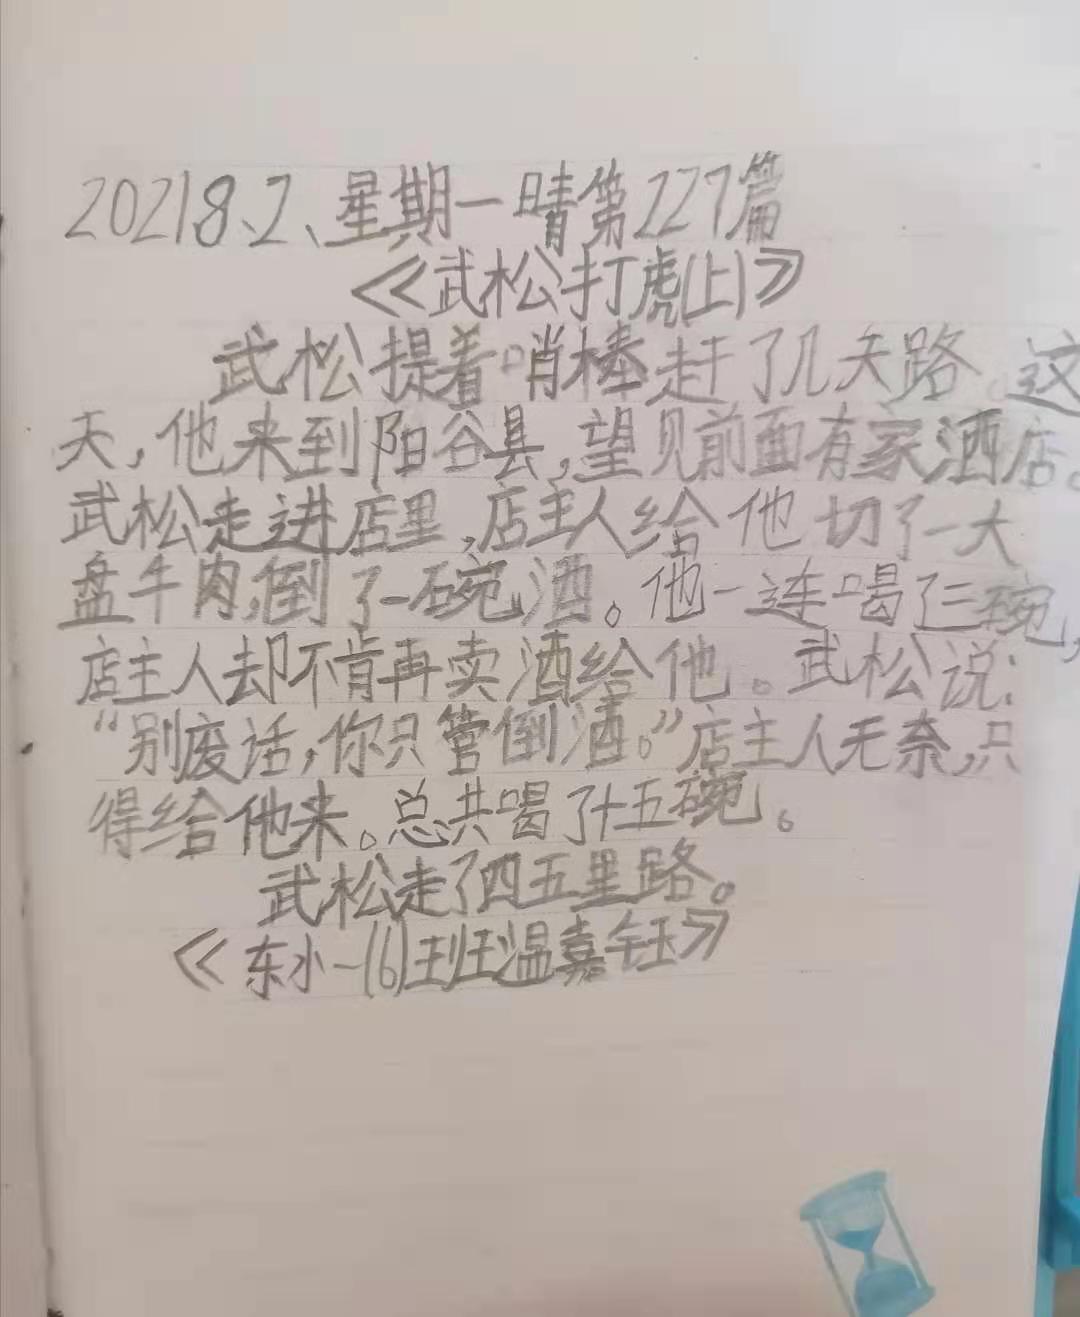 20218、2、星期一晴第227篇
《武松打虎(上)》
武松提着哨棒赶了几天路。这
天,他来到阳谷县,望见前面有家酒店。
武松走进店里,店主人给他切了一大
盘牛肉,倒了一碗酒。他一连喝了三碗,
店主人却不肯再卖酒给他。武松说:
“别废话,你只管倒酒。”店主人无奈,只
得给他来。总共喝了十五碗。
武松走了四五里路。
《东小一(6)班温嘉钰》